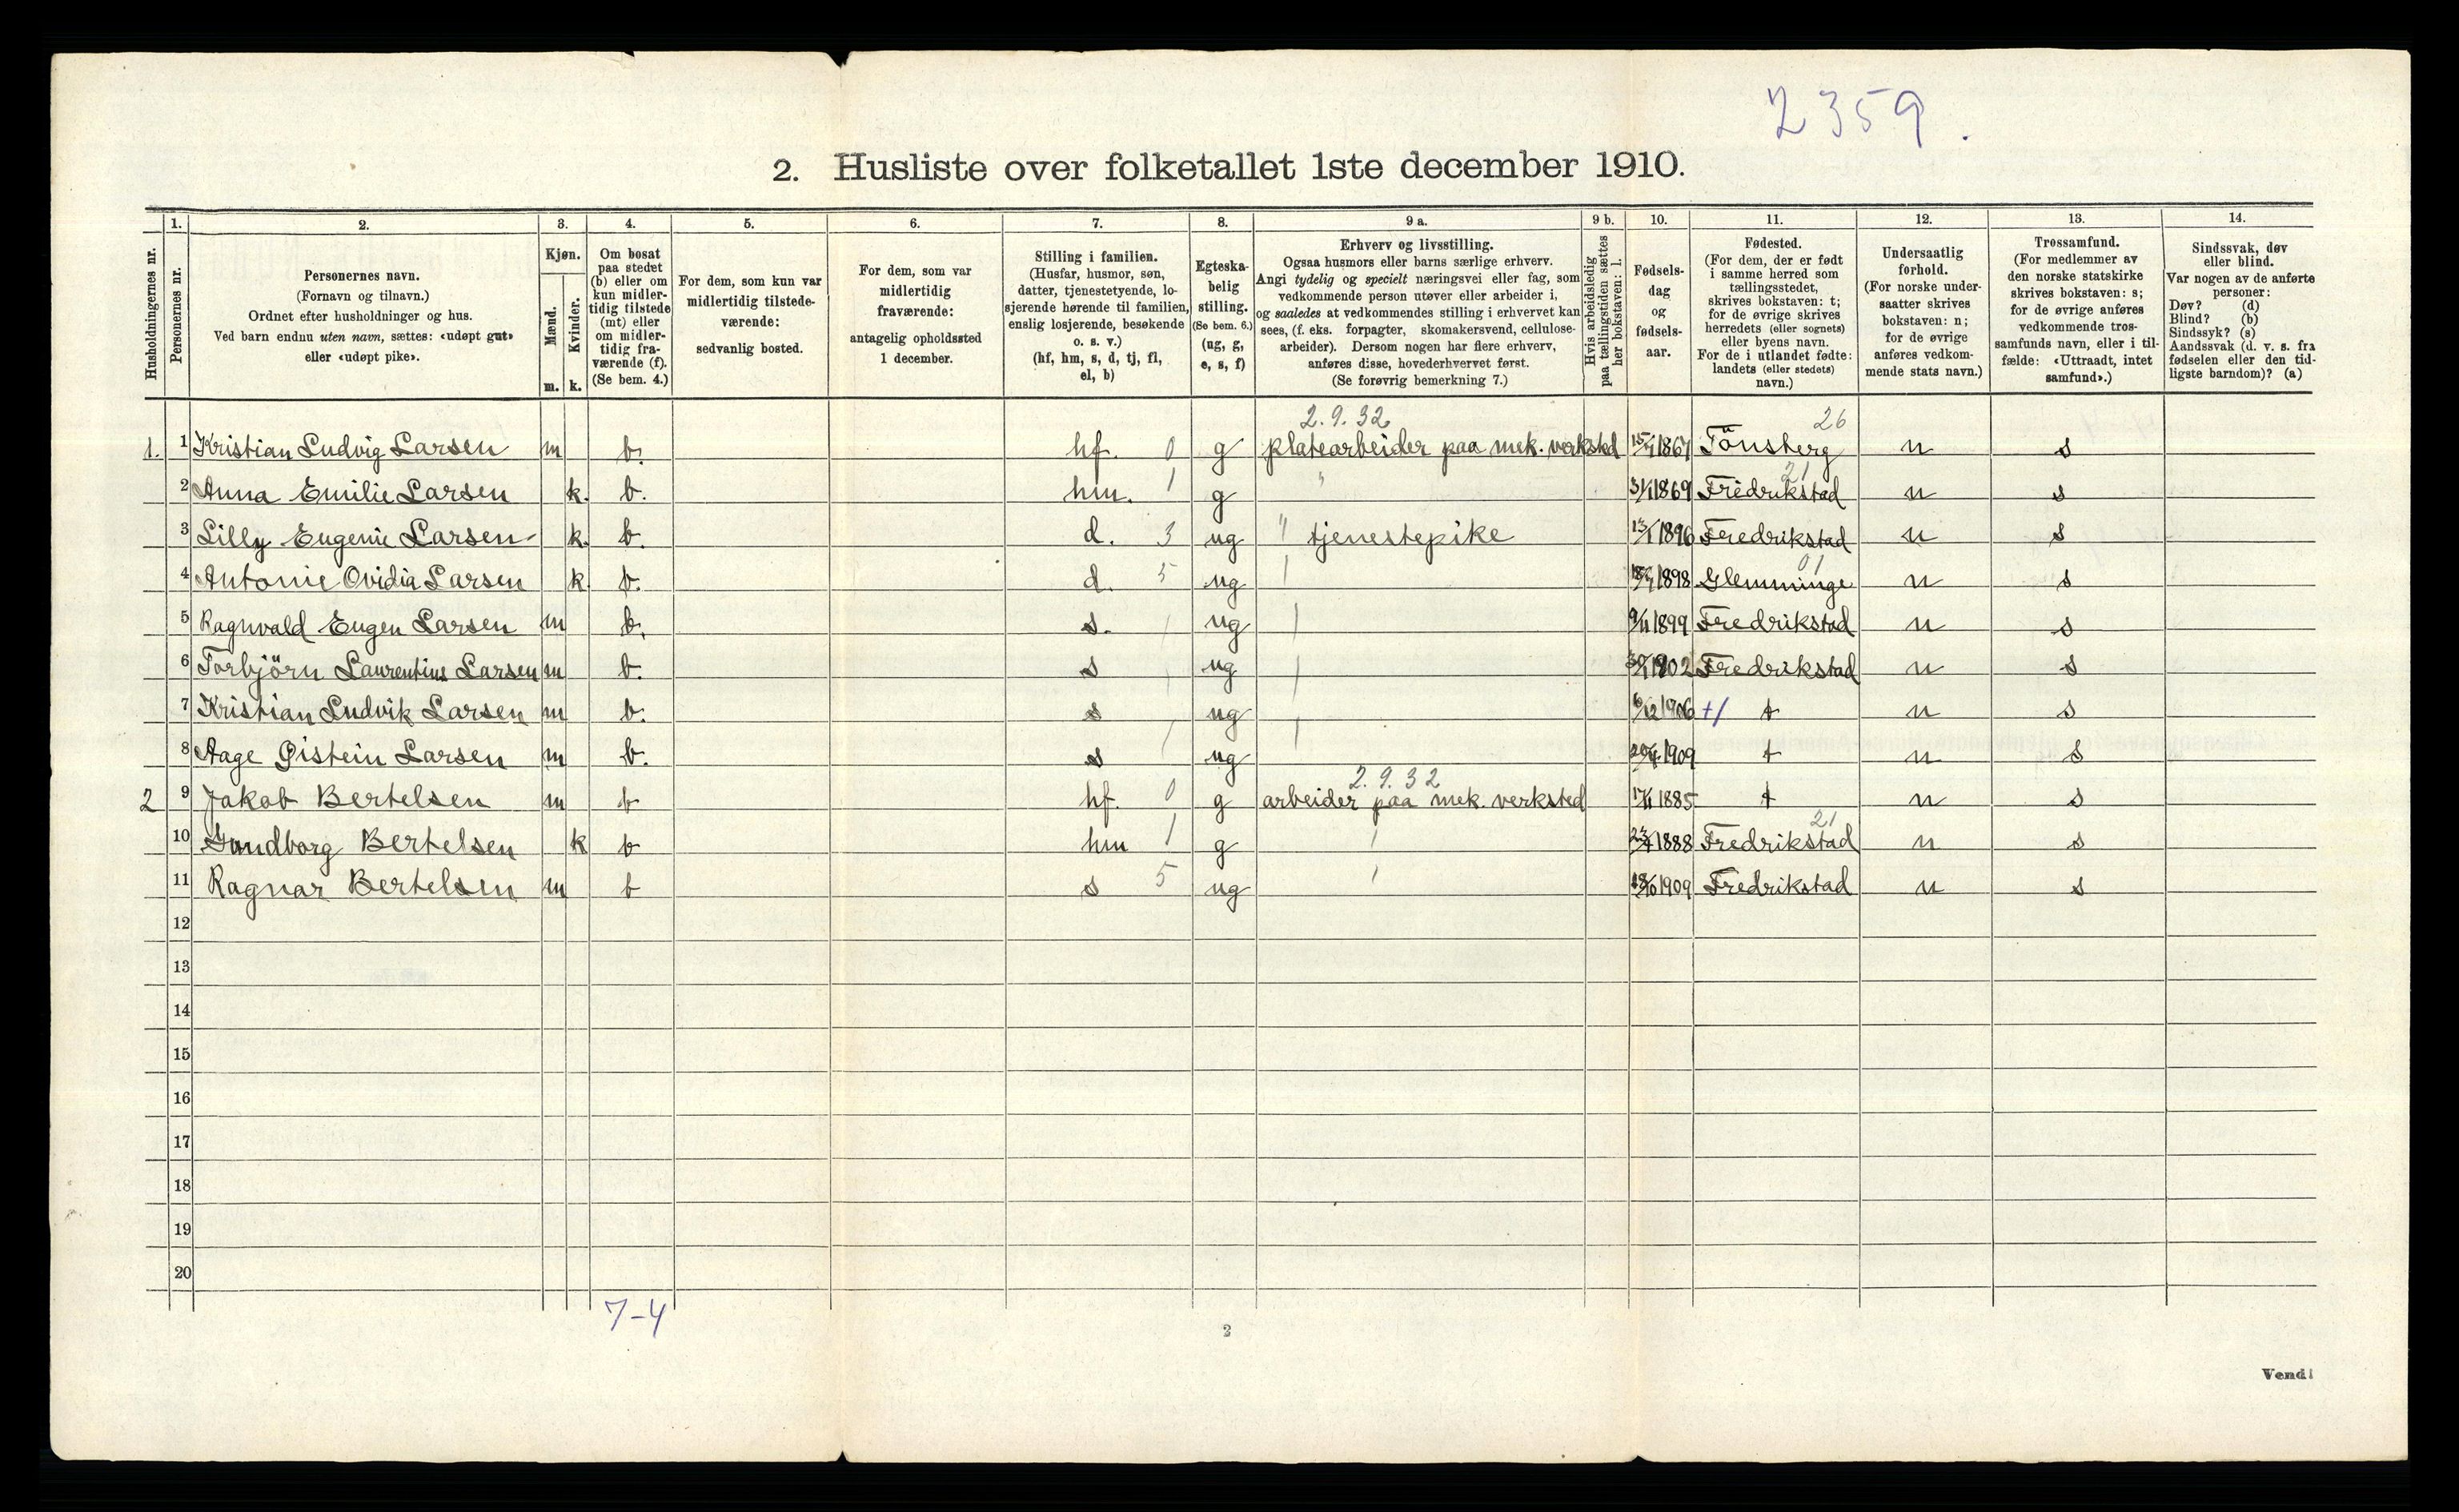 2359.
2. Husliste over folketallet 1ste december 1910.
1. 2. 3. 4. 5. 6. 7. 8. 9 a. 9 b. 10. 11. 12. 13. 14.
Husholdningernes nr.
Personernes nr.
Personernes navn.
(Fornavn og tilnavn.)
Ordnet efter husholdninger og hus.
Ved barn endnu uten navn, sættes: «udøpt gut»
eller «udøpt pike».
Kjøn.
Mænd.
Kvinder.
m. k.
Om bosat
paa stedet
(b) eller om
kun midler-
tidig tilstede
(mt) eller
om midler-
tidig fra-
værende (f).
(Se bem. 4.)
For dem, som kun var
midlertidig tilstede-
værende:
sedvanlig bosted.
For dem, som var
midlertidig
fraværende:
antagelig opholdssted
1 december.
Stilling i familien.
(Husfar, husmor, søn,
datter, tjenestetyende, lo-
sjerende hørende til familien,
enslig losjerende, besøkende
o. s. v.)
(hf, hm, s, d, tj, fl,
el, b)
Egteska-
belig
stilling.
(Se bem. 6.)
(ug, g,
e, s, f)
Erhverv og livsstilling.
Ogsaa husmors eller barns særlige erhverv.
Angi tydelig og specielt næringsvei eller fag, som
vedkommende person utøver eller arbeider i,
og saaledes at vedkommendes stilling i erhvervet kan
sees, (f. eks. forpagter, skomakersvend, cellulose-
arbeider). Dersom nogen har flere erhverv,
anføres disse, hovederhvervet først.
(Se forøvrig bemerkning 7.)
Hvis arbeidsledig
paa tællingstiden sættes
her bokstaven: l.
Fødsels-
dag
og
fødsels-
aar.
Fødested.
(For dem, der er født
i samme herred som
tællingsstedet,
skrives bokstaven: t;
for de øvrige skrives
herredets (eller sognets)
eller byens navn.
For de i utlandet fødte:
landets (eller stedets)
navn.)
Undersaatlig
forhold.
(For norske under-
saatter skrives
bokstaven: n;
for de øvrige
anføres vedkom-
mende stats navn.)
Trossamfund.
(For medlemmer av
den norske statskirke
skrives bokstaven: s;
for de øvrige anføres
vedkommende tros-
samfunds navn, eller i til-
fælde: «Uttraadt, intet
samfund».)
Sindssvak, døv
eller blind.
Var nogen av de anførte
personer:
Døv? (d)
Blind? (b)
Sindssyk? (s)
Aandssvak (d. v. s. fra
fødselen eller den tid-
ligste barndom)? (a)
2.9.32 26
1. 1 Kristian Ludvig Larsen m b. hf. 0 g platearbeider paa mek. verksted 1867 Tönsberg n s
21
2 Anna Emilie Larsen k. b. hm. 1 g " 31/1 1869 Fredrikstad n s
3 Lilly Eugenie Larsen k. b. d. 3 ug " tjenestepike 13/1 1896 Fredrikstad n s
01
4 Antonie Ovidia Larsen k b. d. 5 ug 1898 Glemminge n s
5 Ragnvald Eugen Larsen m b. s. ug 9/11 1899 Fredrikstad n s
6 Torbjörn Laurentius Larsen m b. s ug 1902 Fredrikstad n s
7 Kristian Ludvik Larsen m b. s ug 6/12 1906 +/ t n s
8 Aage Øistein Larsen m b. s ug 1909 t n s
2.9.32
2 9 Jakob Bertelsen m b hf. 0 g arbeider paa mek. verksted 17/11 1885 t n s
21
10 Gundborg Bertelsen k b hm 1 g 1888 Fredrikstad n s
11 Ragnar Bertelsen m b s 5 ug 1909 Fredrikstad n s
12
13
14
15
16
17
18
19
20
7-4
2
Vend!